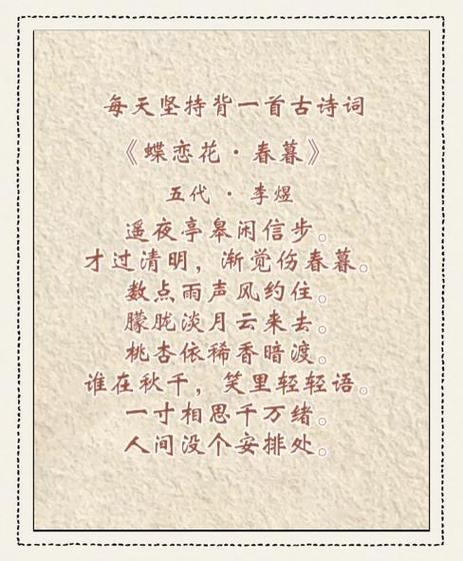 每天坚持背一首古诗词
《蝶恋花·春暮》
五代 · 李煜
遥夜亭皋闲信步。
才过清明，渐觉伤春暮。
数点雨声风约住。
朦胧淡月云来去。
桃杏依稀香暗渡。
谁在秋千，笑里轻轻语。
一寸相思千万绪。
人间没个安排处。